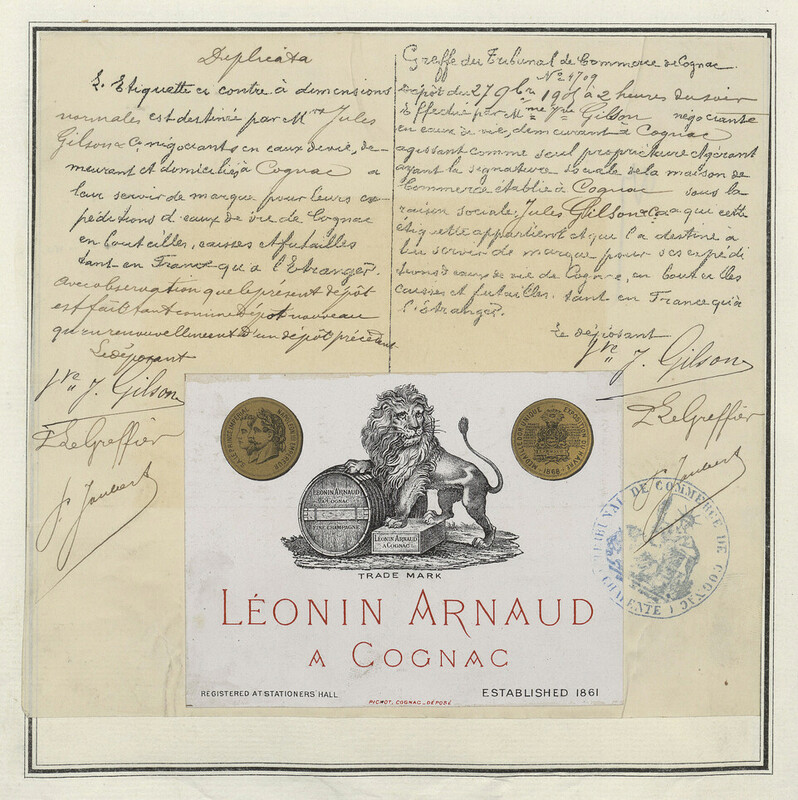 Duplicata
L'Etiquette ci contre à dimensions
normales est destinée par Mme Vve Jules
Gilson & Co, négociants en eaux de vie, de-
meurant et domiciliés à Cognac a
leur servir de marque pour leurs ex-
péditions d'eaux de vie de Cognac
en bouteilles, caisses et futailles
tant en France qu'a l'Etranger.
Avec observation que le présent dépôt
est fait tant comme dépôt nouveau
qu'en renouvellement d'un dépôt précédent
Le déposant
Vve J. Gilson
Le Greffier
J. Joubert
Greffe du Tribunal de Commerce de Cognac
No 4709
Dépôt du 27 9bre 1901 à 2 heures du soir
Effectué par Mme Vve Gilson négociante
en eaux de vie, demeurant à Cognac
agissant comme seul propriétaire & gérant
ayant la signature sociale de la maison de
Commerce établie à Cognac sous la
raison sociale: Jules Gilson & Co a qui cette
étiquette appartient et qui l'a destiné à
lui servir de marque pour ses expédi
tions d'eaux de vie de Cognac, en bouteilles
caisses et futailles, tant en France qu'à
l'étranger.
Le déposant
Vve J. Gilson
Le Greffier
J. Joubert
TRIBUNAL DE COMMERCE DE COGNAC
(CHARENTE)
NAPOLEON III EMPEREUR
MEDAILLE D'OR UNIQUE EXPOSITION DU HAVRE
1868
LEONIN ARNAUD
A COGNAC
FINE CHAMPAGNE
LÉONIN ARNAUD
A COGNAC
TRADE MARK
LÉONIN ARNAUD
A COGNAC
REGISTERED AT STATIONERS' HALL
ESTABLISHED 1861
PICHOT, COGNAC_DÉPOSÉ